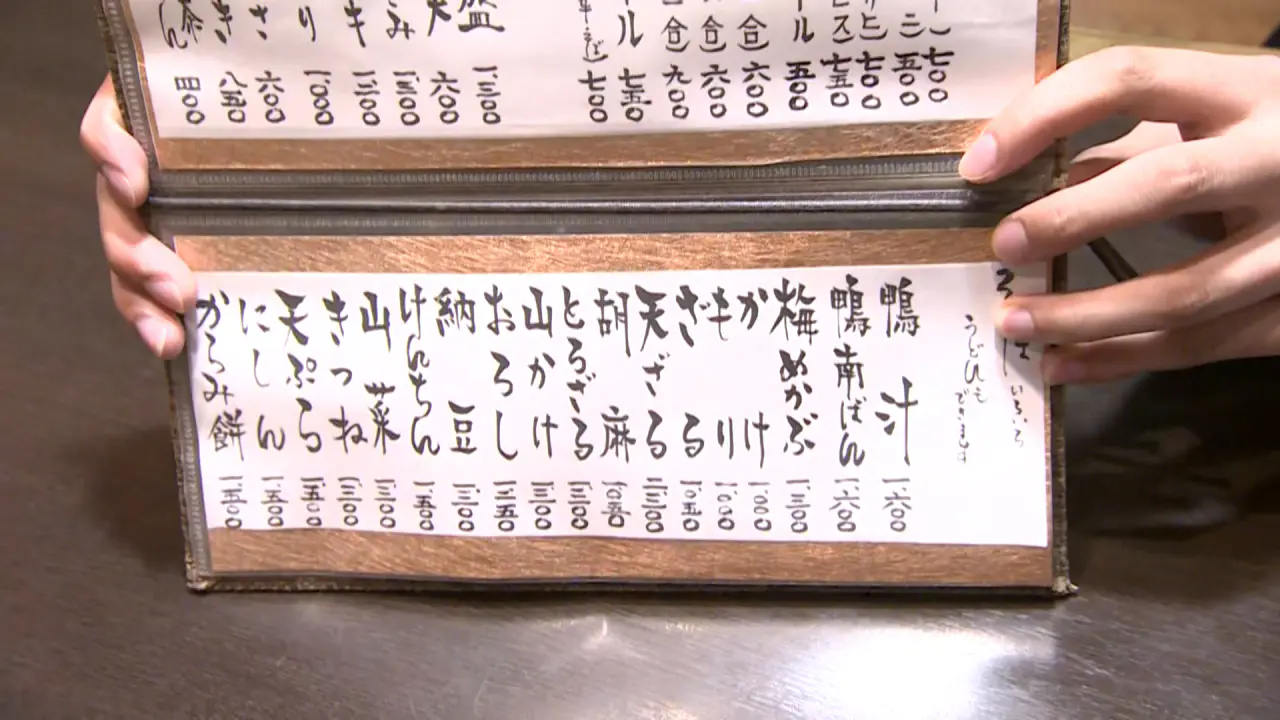 いろいろ
うどんもできます
鴨汁 一、六〇〇
鴨南ばん 一、六〇〇
梅めかぶ 一、三〇〇
かけ 一、〇〇〇
もり 一、〇〇〇
ざる 一、〇五〇
天ざる
とろざる 一、三〇〇
胡麻 一、〇五〇
山かけ 一、三〇〇
おろし 一、三五〇
納豆 一、三〇〇
けんちん 一、五〇〇
山菜 一、三〇〇
きつね 一、三〇〇
天ぷら 一、五〇〇
にしん 一、五〇〇
からみ餅 一、五〇〇
七〇〇
五〇〇
七〇〇
七五〇
ール 五〇〇
合) 六〇〇
合) 六〇〇
合) 九〇〇
ル 七五〇
七〇〇
盛 一、三〇〇
天 六〇〇
み 一、三〇〇
キ 一、三〇〇
り 一、〇〇〇
さ 六〇〇
き 八五〇
ん 四〇〇